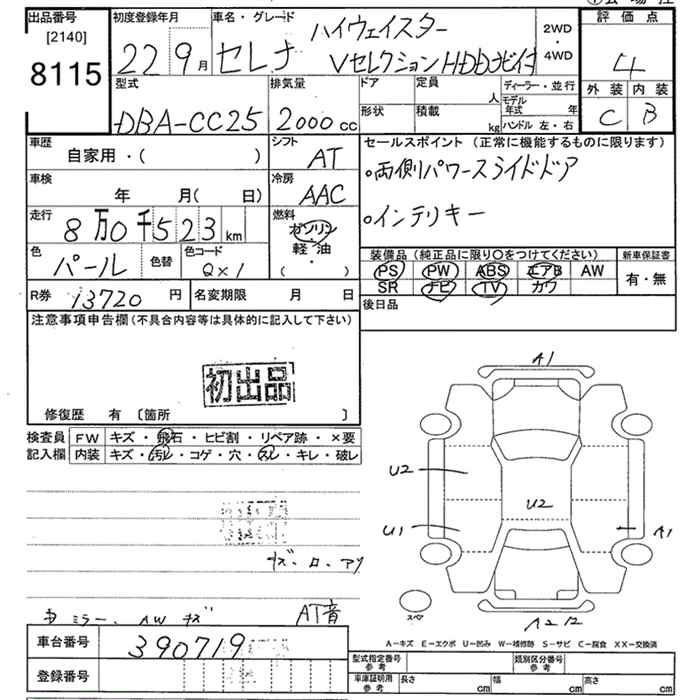 出品番号 初度登録年月 車名・グレード ハイウェイスター 2WD・4WD 評価点
[2140] 8115 22 9月 セレナ Vセレクション HDDナビ付 4
型式 排気量 ドア 定員 人 ディーラー・並行 外装 内装
DBA-CC25 2000cc 形状 積載 kg モデル年式 年 ハンドル 左・右 C B
車歴 自家用・( ) シフト AT セールスポイント (正常に機能するものに限ります)
車検 年 月(日) 冷房 AAC ・両側パワースライドドア
走行 8万0千523km 燃料 ガソリン 軽油 ( ・ ) ・インテリキー
色 パール 色替 色コード QX1 装備品 (純正品に限り○をつけてください) 新車保証書
PS PW ABS エアB AW 有・無
SR ナビ TV カワ
R券 13720円 名変期限 月 日 後日品
注意事項申告欄 (不具合内容等は具体的に記入して下さい)
初出品
修復歴 有 〔箇所 〕
検査員 FW キズ・飛石・ヒビ割・リペア跡・×要
記入欄 内装 キズ・汚レ・コゲ・穴・スレ・キレ・破レ
A1
U2
U2
U1
A1
スペア
A2 12
AT音
A-キズ E-エクボ U-凹み W-補修跡 S-サビ C-腐食 XX-交換済
車台番号 390719 型式指定番号 参考 類別区分番号 参考
登録番号 車庫証明用 参考 長さ cm 幅 cm 高さ cm